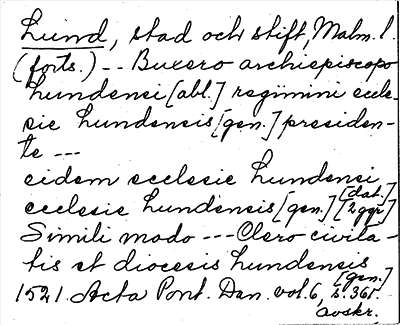 Lund, stad och stift, Malm. l.
(forts.) -- Buxero archiepiscopo
Lundensi [abl.] regimini eccle-
sie Lundensis [gen.] presiden-
te ---
eidem ecclesie Lundensi [dat.]
ecclesie Lundensis [gen.] [2 ggr]
Simili modo --- Clero civita-
tis et diocesis Lundensis [gen.]
1521. Acta Pont. Dan. vol. 6, s. 361.
avskr.